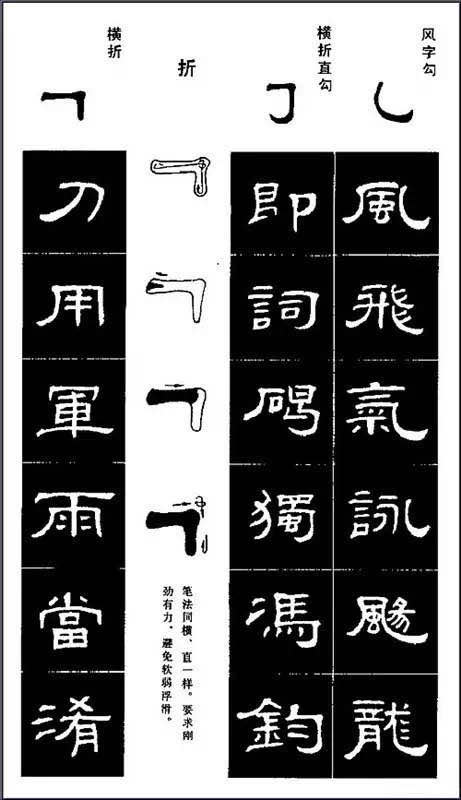 风字勾
風
飛
氣
詠
颺
龍
横折直勾
即
詞
碣
獨
馮
鈞
折
笔法同横、直一样。要求刚
劲有力，避免软弱浮滑。
横折
刀
用
軍
雨
當
淆